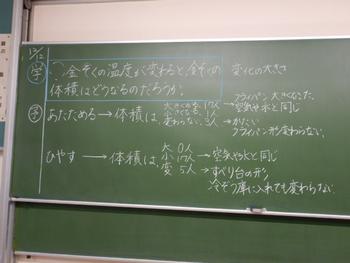 12/12
学 金ぞくの温度が変わると、金ぞくの
体積はどうなるのだろうか。
変化の大きさ
予
あたためる→体積は、
大きくなる 17人→フライパン大きくなった。
空気や水と同じ
小さくなる 1人→かたい
変わらない 3人 フライパン形変わらない。
ひやす→体積は、
大 0人
小 17人→空気や水と同じ
変 5人→すべり台の形、
冷ぞう庫に入れても変わらない。